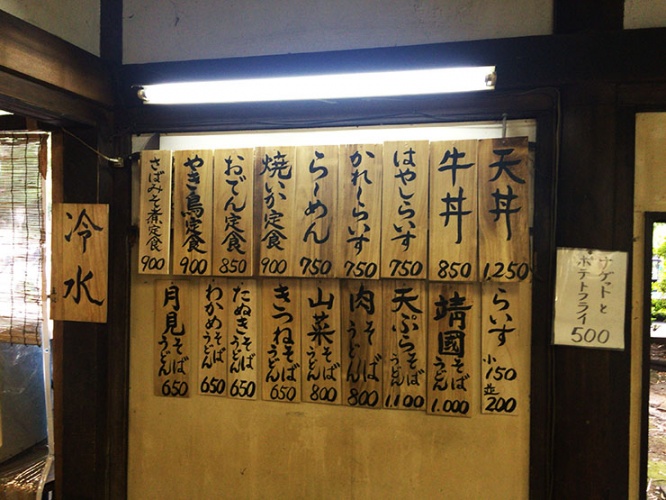 天丼 1,250
牛丼 850
はやしらいす 750
かれーらいす 750
らーめん 750
焼いか定食 900
おでん定食 850
やき鳥定食 900
さばみそ煮定食 900
らいす 小150 並200
靖國そばうどん 1,000
天ぷらそばうどん 1,100
肉そばうどん 800
山菜そばうどん 800
きつねそばうどん 650
たぬきそばうどん 650
わかめそばうどん 650
月見そばうどん 650
冷水
ナゲットと
ポテトフライ
500